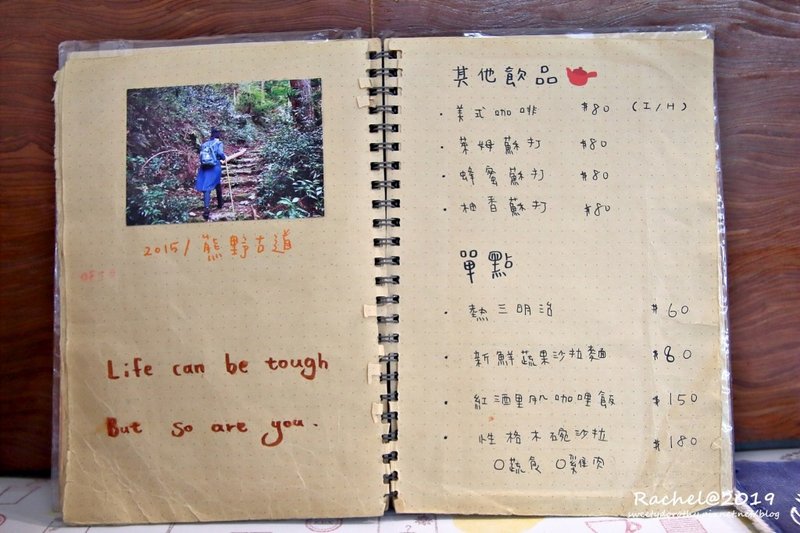 2015/熊野古道
Life can be tough
But so are you.
其他飲品
·美式咖啡 $80 (I/H)
·萊姆蘇打 $80
·蜂蜜蘇打 $80
·柚香蘇打 $80
單點
·熱三明治 $60
·新鮮蔬果沙拉麵 $80
·紅酒里肌咖哩飯 $150
·性格木碗沙拉 $180
O蔬食 O雞肉
Rachel@2019
sweetydorothy.pixnet.net/blog